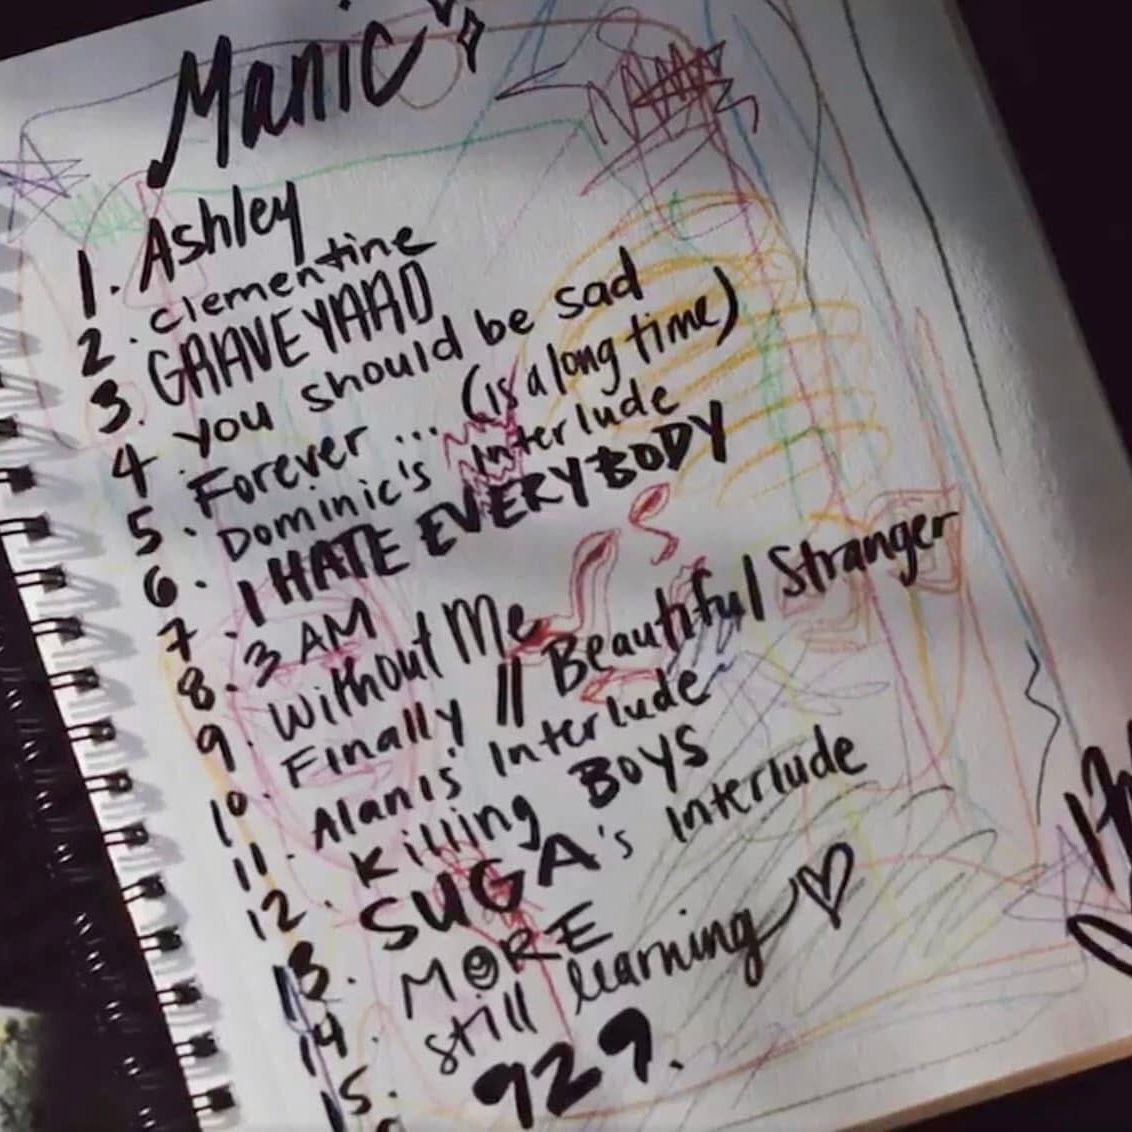 Manic
1. Ashley
2. clementine
3. GRAVEYARD
4. you should be sad
5. Forever ... (is a long time)
6. Dominic's interlude
7. I HATE EVERYBODY
8. 3 AM
9. Without Me
10. Finally // Beautiful Stranger
11. Alanis' Interlude
12. Killing BOYS
13. SUGA's Interlude
14. MORE
15. still learning
929.